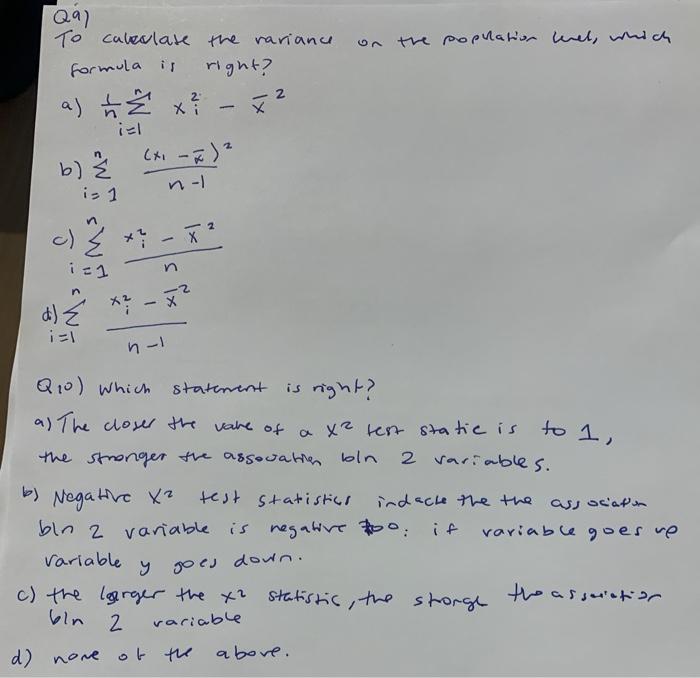 Q9)
To calculate the variance on the population level, which
formula is right?
a) 1/n Σ_{i=1}^{n} x_i² - x̄²
b) Σ_{i=1}^{n} (x_1 - x̄)² / (n-1)
c) Σ_{i=1}^{n} (x_i² - x̄²) / n
d) Σ_{i=1}^{n} (x_i² - x̄²) / (n-1)
Q10) Which statement is right?
a) The closer the value of a X² test static is to 1,
the stronger the association b/n 2 variables.
b) Negative X² test statistics the the association
b/n 2 variable is negative : if variable goes up
variable y goes down.
c) the larger the x² statistic, the the association
b/n 2 variable
d) none of the above.